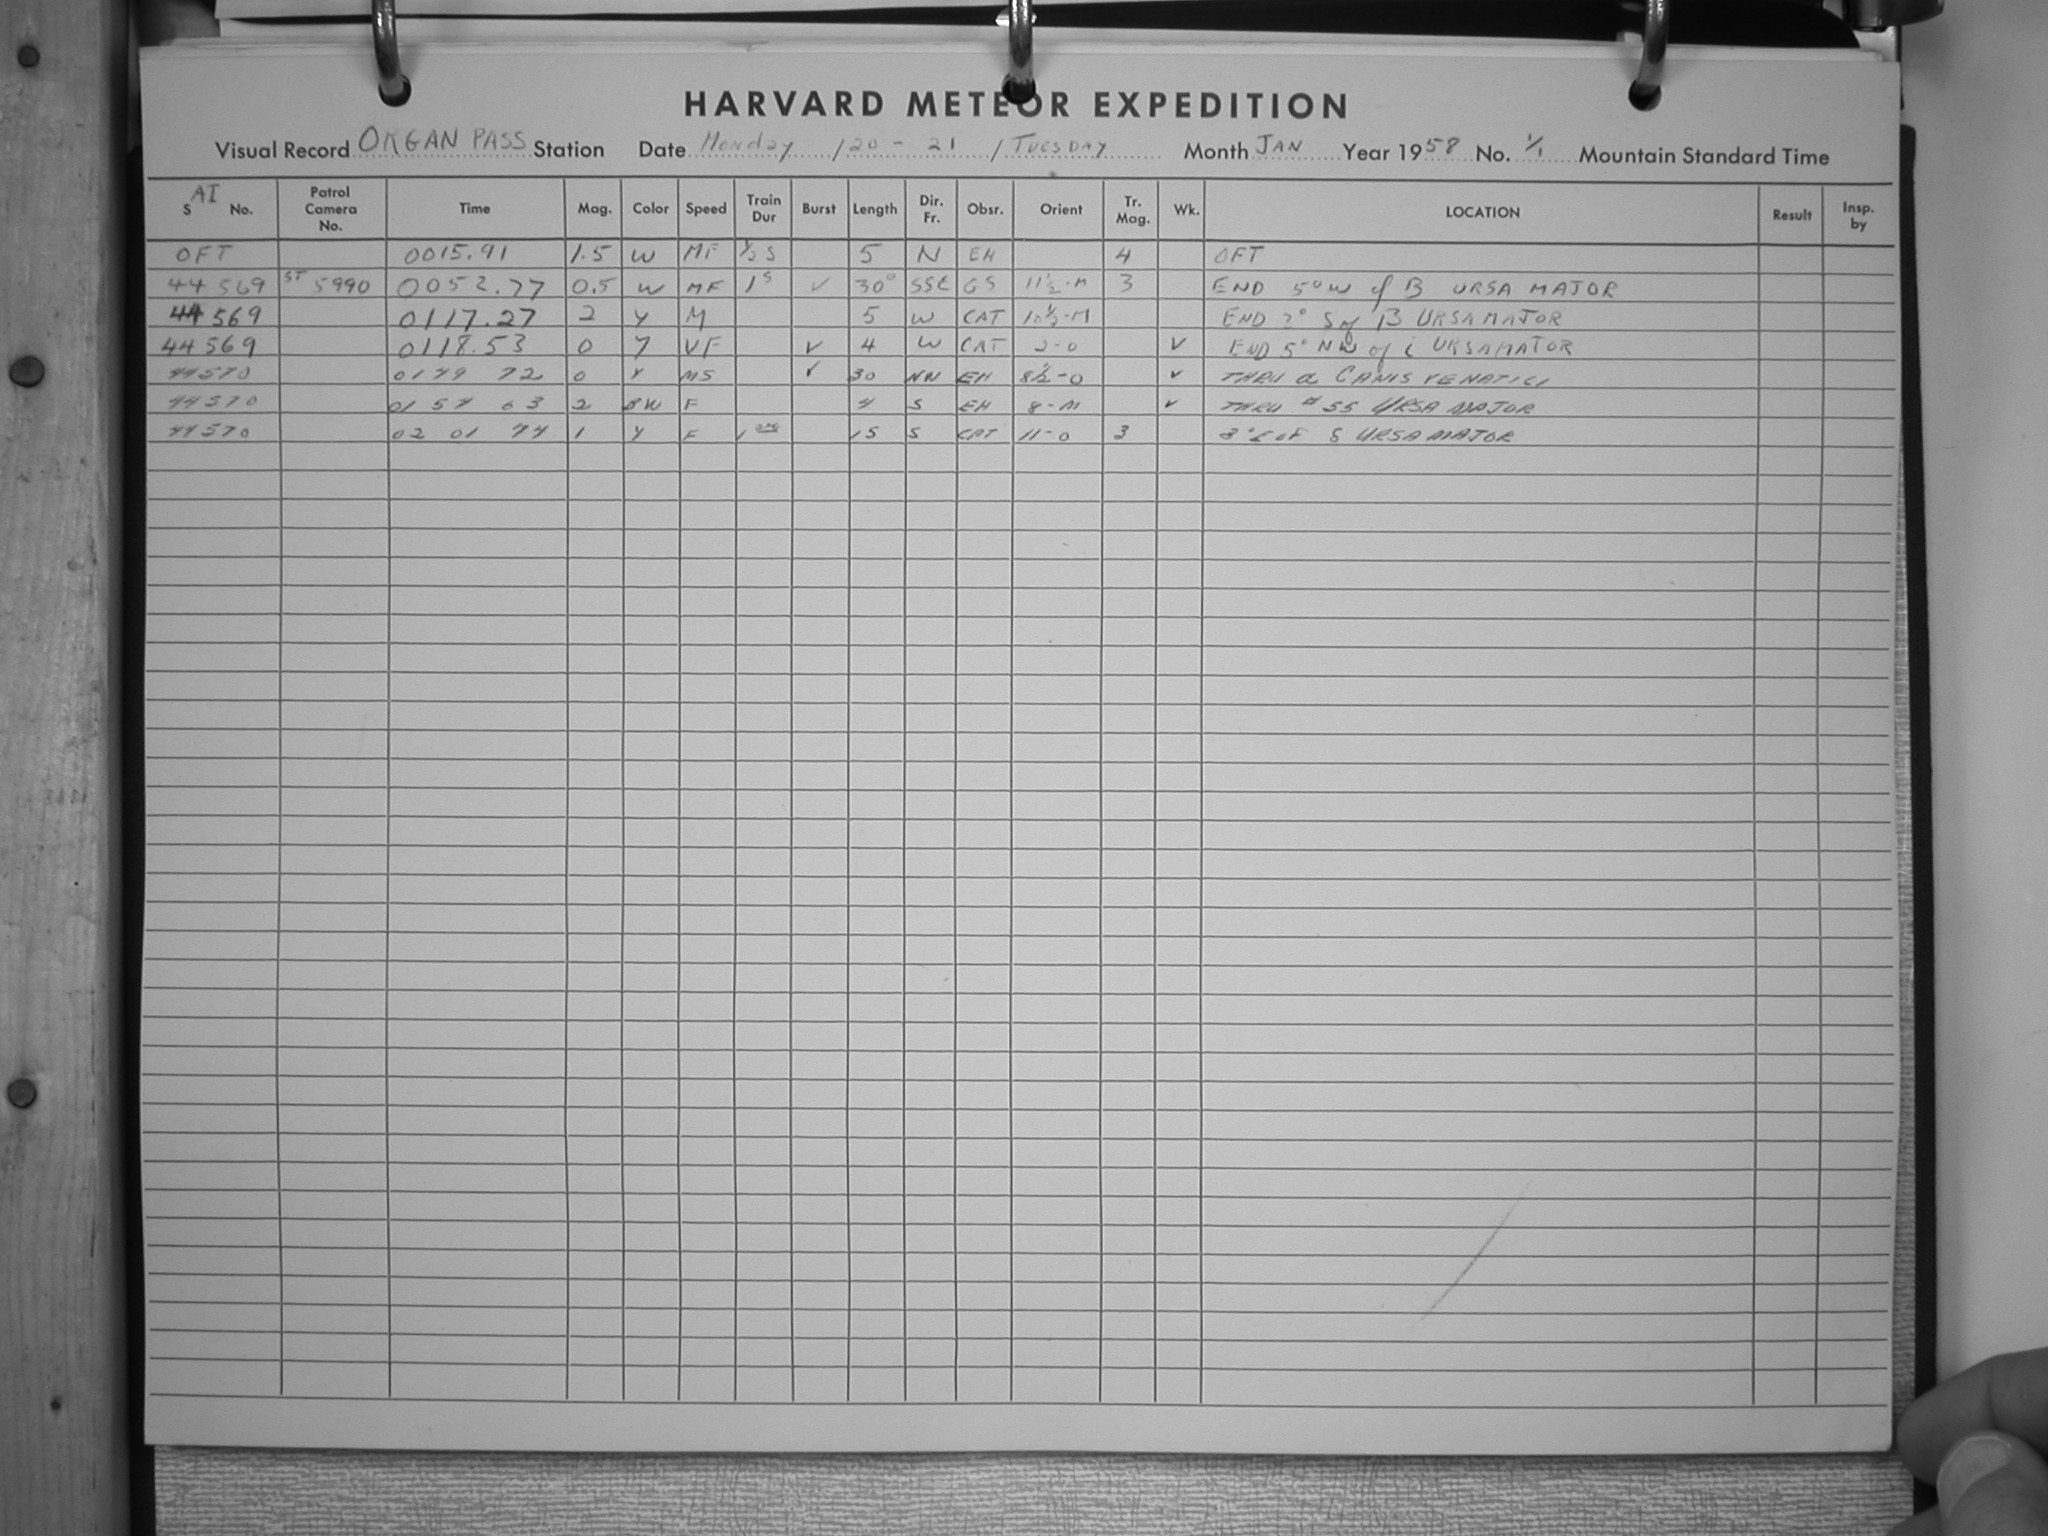 HARVARD METEOR EXPEDITION
Visual Record ORGAN PASS Station Date Monday /20 - 21 / TUESDAY Month JAN Year 1958 No. 1/1 Mountain Standard Time
AI
S No. Patrol Camera No. Time Mag. Color Speed Train Dur Burst Length Dir. Fr. Obsr. Orient Tr. Mag. Wk. LOCATION Result Insp. by
OFT 0015.91 1.5 W MF 1/2 S 5 N EH 4 OFT
44 569 ST 5990 0052.77 0.5 W MF 1s ✓ 30° SSE GS 11½-M 3 END 5° W of B URSA MAJOR
44 569 0117.27 2 Y M 5 W CAT 10½-M END 2° S of B URSA MAJOR
44 569 0118.53 0 Y VF ✓ 4 W CAT 2-0 ✓ END 5° NW of i URSA MAJOR
44570 0 Y MS ✓ 30 NN EH 8½-0 ✓ THRU α CANIS VENATICI
44570 2 F S EH 8-M ✓ THRU #55 URSA MAJOR
44570 02 01 44 1 Y F 15 S CAT 11-0 3 3° E OF URSA MAJOR